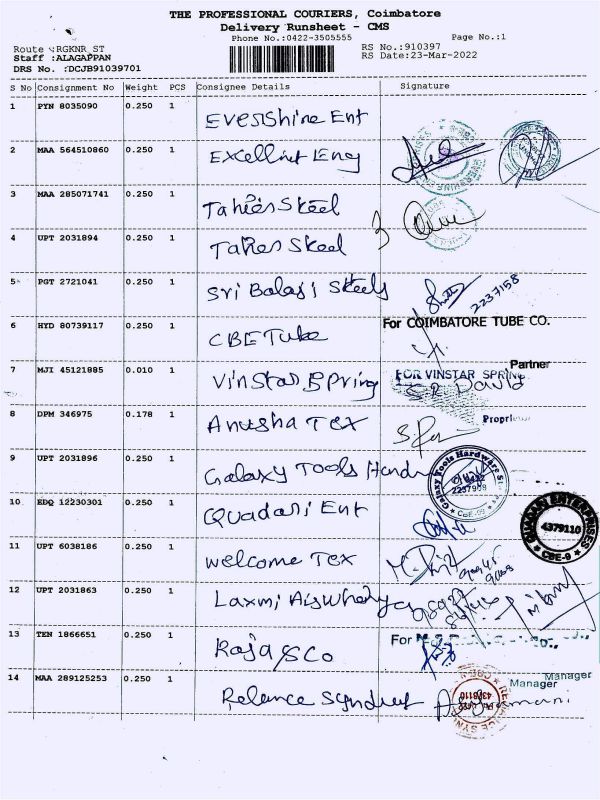 THE PROFESSIONAL COURIERS, Coimbatore
Delivery Runsheet - CMS
Phone No.:0422-3505555
Page No.:1
Route :RGKNR_ST
RS No.:910397
Staff :ALAGAPPAN
RS Date:23-Mar-2022
DRS No. :DCJB91039701
S No Consignment No Weight PCS Consignee Details Signature
1 PYN 8035090 0.250 1 Evershine Ent
2 MAA 564510860 0.250 1 Excellint Eng
3 MAA 285071741 0.250 1 Taher Steel
4 UPT 2031894 0.250 1 Taher Steel
5 PGT 2721041 0.250 1 Sri Balaji Steels
2237158
6 HYD 80739117 0.250 1 CBE Tube
For COIMBATORE TUBE CO.
Partner
7 MJI 45121885 0.010 1 Vinstar Spring
FOR VINSTAR SPRING
S.R. David
8 DPM 346975 0.178 1 Anusha Tex
9 UPT 2031896 0.250 1 Galaxy Tools Hardw
Galaxy Tools Hardware
CBE-09
10 EDQ 12230301 0.250 1 Quadari Ent
ENTERPRISES
4379110
CBE-9
11 UPT 6038186 0.250 1 Welcome Tex
12 UPT 2031863 0.250 1 Laxmi
13 TEN 1866651 0.250 1 Raja & Co
For
Manager
14 MAA 289125253 0.250 1 Relance
Manager